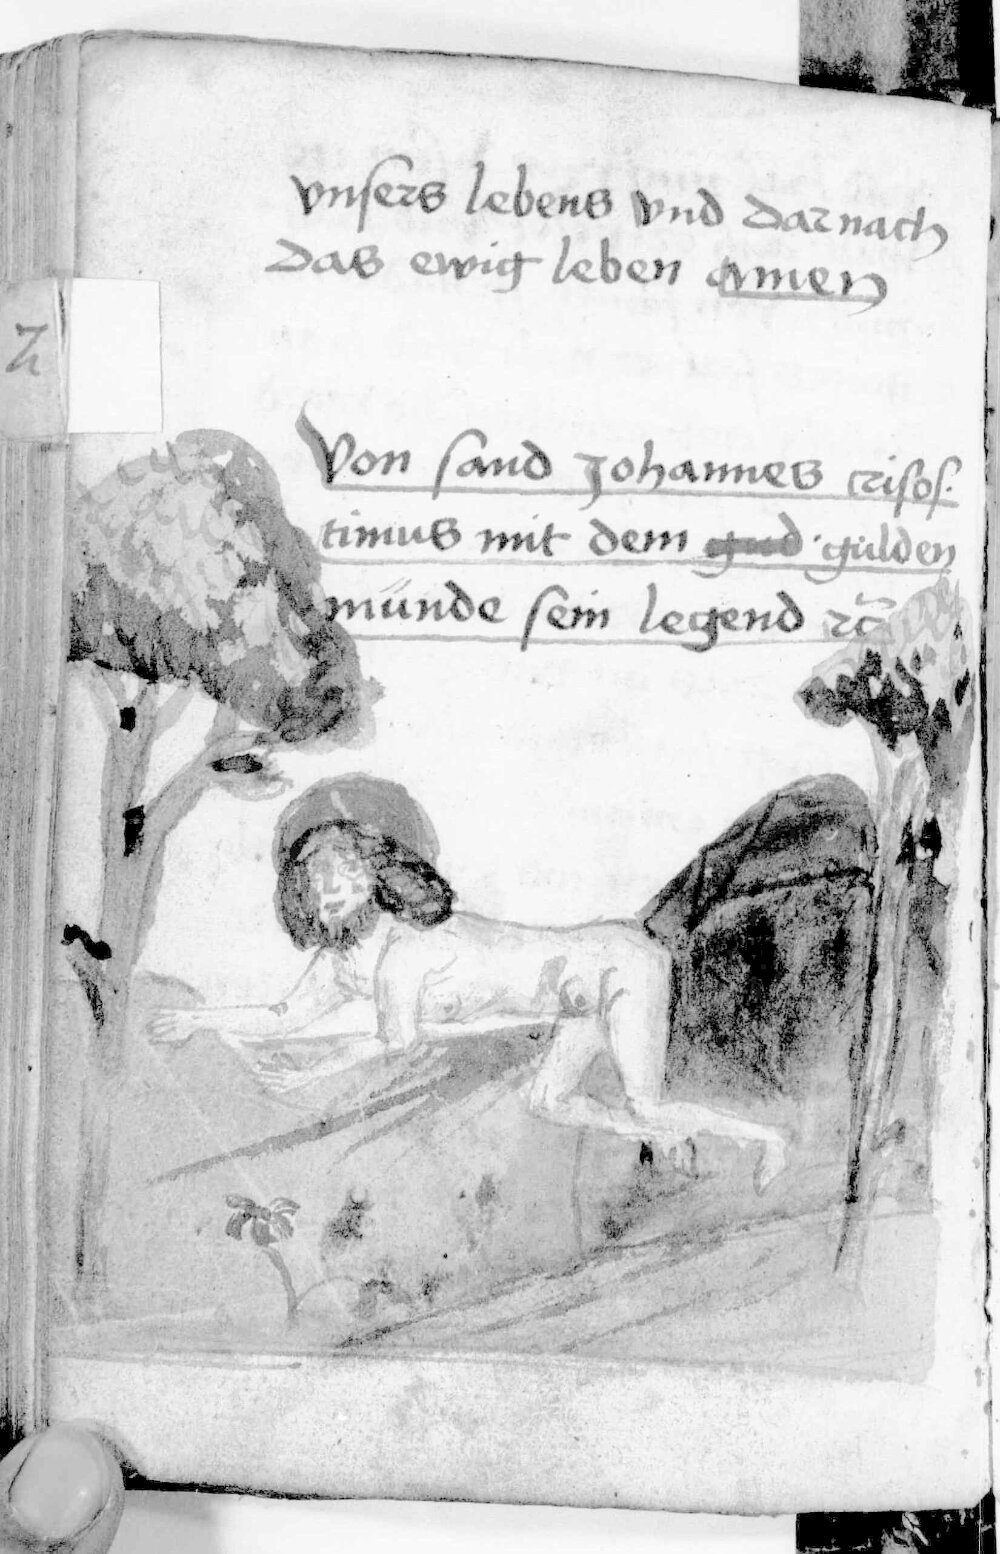 vnsers lebens vnd darnach
das ewig leben Amen
Von sand Johannes crisos·
timus mit dem gud guͤlden
můnde sein legend ꝛc̃